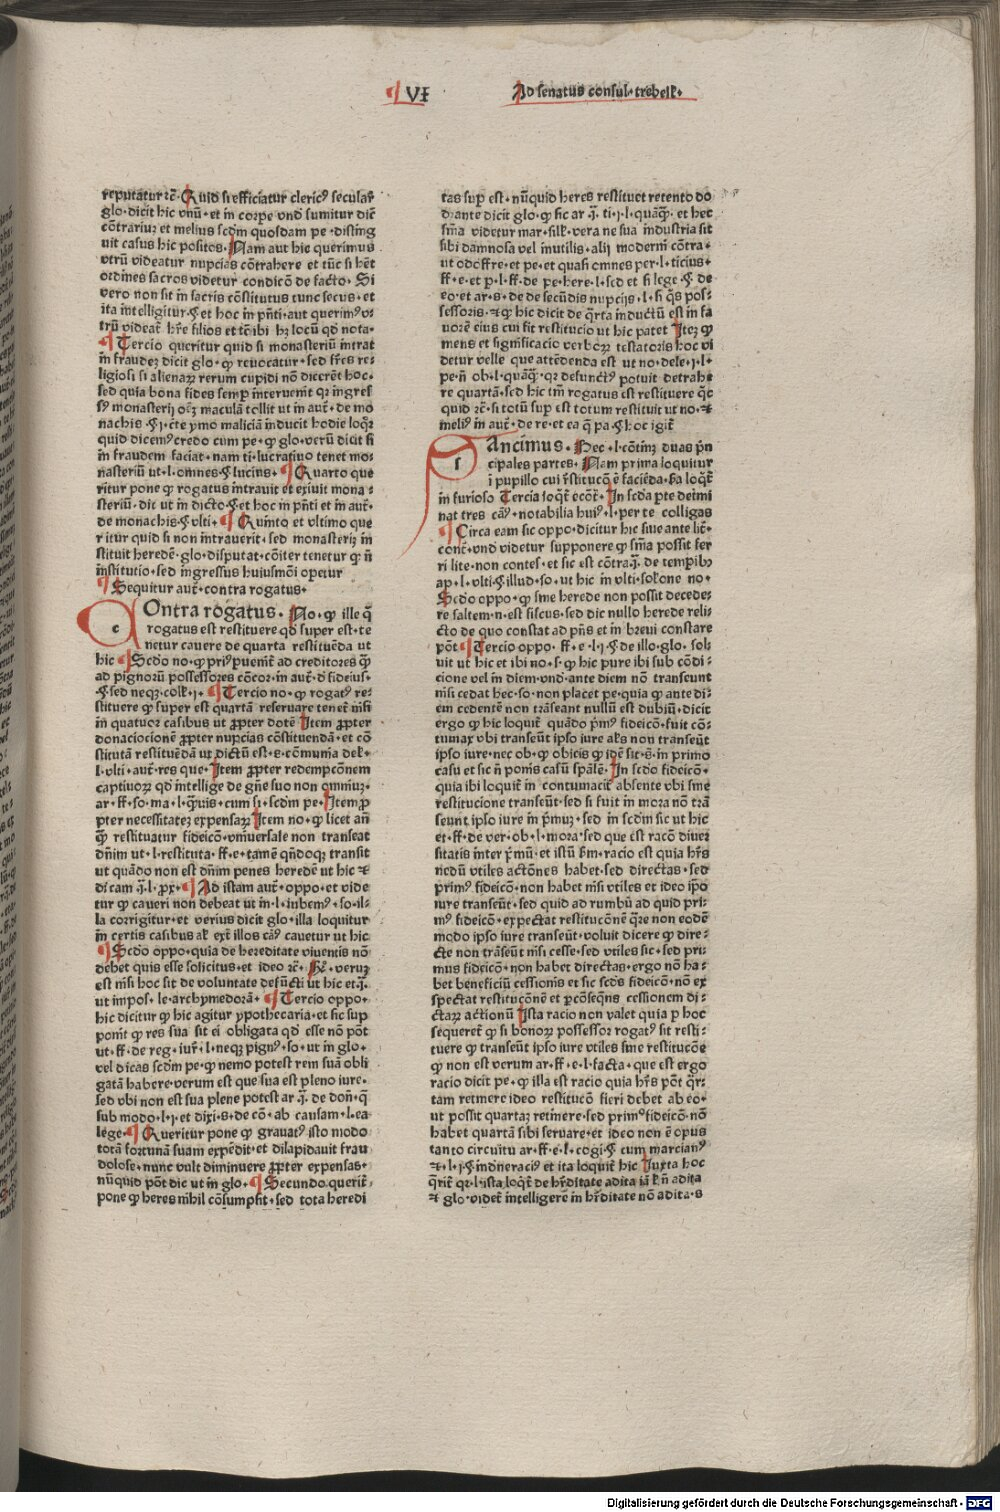 ¶ VI Ad senatus consul· trebell·
reputatur ꝛc̄· Quid si efficiatur cleric⁹ secular̄
glo· dicit hic vnū· et in corpe vnd̄ sumitur dic̄
cōtrariuꝫ et melius scd̄m quosdam pe· disting
uit casus hic positos· Nam aut hic querimus
vtrū videatur nupcias cōtrahere et tūc si hēt
ordines sacros videtur condicōn̄ de facto· Si
vero non sit in sacris cōstitutus tunc secus· et
ita intelligitur ꝗ et hoc in pn̄ti· aut querim⁹ v
trū videat̄ hr̄e filios et tē ibi hꝫ locū qd̄ nota·
¶ Tercio queritur quid si monasteriū intrat
in fraudeꝫ dicit glo· ꝙ reuocatur· sed fr̄es re⸗
ligiosi si alienaꝝ rerum cupidi nō dicerēt hoc·
sed quia bona fides semꝑ interuenit qꝛ ingres
s⁹ monasterij oēꝫ maculā tollit ut in aut̄· de mo
nachis· ꝗ i· cte ymo maliciā inducit hodie loqꝛ
quid dicem⁹ credo cum pe· ꝙ glo· verū dicit si
in fraudem faciat· nam ti· lucratiuo tenet mo
nasteriū ut· l· omnes ꝗ lucius· ¶ Quarto que
ritur pone ꝙ rogatus intrauit et exiuit mona⸗
steriū· dic ut in dicto· ꝗ et hoc in pn̄ti et in aut̄·
de monachis· ꝗ vlti· ¶ Quinto et vltimo que
ritur quid si non intrauerit· sed monasteriꝫ in
stituit heredē· glo· disputat· cōiter tenetur ꝙ n̄
institutio· sed ingressus huiusmōi operur
¶ Sequitur aut̄· contra rogatus·
COntra rogatus· No· ꝙ ille q̄
rogatus est restituere qd̄ super est· te
netur cauere de quarta restituēda ut
hic ¶ Scd̄o no· ꝙ pri⁹ puemt̄ ad creditores q̄ꝫ
ad pignorū possessores cōcor· in aut̄· d̄ fideius·
ꝗ sed neqꝫ· coll· i· ¶ Tercio no· ꝙ rogat⁹ re⸗
stituere ꝙ super est quartā reseruare tenet̄ nisi
in quatuor casibus ut ꝓpter dotē Item ꝓpter
donaciocionē ꝓpter nupcias cōstituendā· et cō
stitutā restituēdā ut dictū est· s· cōmunia de l·
l· vlti· aut̄· res que· Item ꝓpter redempcōnem
captiuoꝝ qd̄ intellige de gn̄e suo non omniuꝫ·
ar· ff· so· ma· l· q̄uis· cum si· scd̄m pe· Item ꝓ
pter necessitateꝫ expensaꝝ Item no· ꝙ licet an̄
q̄ꝫ restituatur fideicō· vniuersale non transeat
dn̄im ut· l· restituta· ff· e· tamē qn̄doqꝫ transit
ut quādo non est dn̄im penes heredē ut hic ⁊
di cam q̄· l· pꝛ· ¶ Ad istam aut̄· oppo· et vide
tur ꝙ caueri non debeat ut in· l· iubem⁹· so· il⸗
la corrigitur· et verius dicit glo· illa loquitur
in certis casibus al̄ ext̄ illos cā⁹ cauetur ut hic
¶ Scd̄o oppo· quia de hereditate viuentis nō
debet quis esse solicitus· et ideo ꝛc̄· Sꝭ· veruꝫ
est nisi hoc sit de voluntate defūcti ut hic et· q̄·
ut impos· le· archymedorā· ¶ Tercio oppo·
hic dicitur ꝙ hic agitur ypothecaria· et sic sup
ponit̄ ꝙ res sua sit ei obligata qd̄ esse nō pōt
ut· ff· de reg· iur̄· l· neqꝫ pign⁹· so· ut in glo·
vel dicas scd̄m pe· ꝙ nemo potest rem suā obli
gatā habere· verum est que sua est pleno iure·
sed vbi non est sua plene potest ar q̄· de don̄· q̄
sub modo· l· i· et dixi· s· de cō· ab causam· l· ea
lege· ¶ Queritur pone ꝙ grauat⁹ isto modo
totā fortunā suam expēdit· et dilapidauit frau
dolose· nunc vult diminuere ꝓpter expensas·
nūquid pōt dic ut in glo· ¶ Secundo querit̄·
pone ꝙ heres nihil cōsumpsit· sed tota heredi
tas sup est· nūquid heres restituet retento do
drante dicit glo· ꝙ sic ar q̄· ti· i· l· quāqꝫ· et hec
sn̄ia videtur mar· sill· vera ne sua industria sit
sibi damnosa vel inutilis· alij moderni cōtra·
ut odoffre· et pe· et quasi omnes per· l· ticius·
ff· e· et p· l· ff· de pe· here· l· sed et si lege· ꝗ de
eo· et ar· s· de secūdis nupcijs· l· si q̄s pos⸗
sessoris· ⁊ ꝙ hic dicit de q̄rta inductū est in fa
uorē eius cui fit restitucio ut hic patet Iteꝫ ꝙ
mens et significacio verboꝝ testatoris hoc vi
detur velle que attēdenda est ut no· de le· i· l·
pe· n̄ ob· l· quāqꝫ· qꝛ defunct⁹ potuit detrahe
re quartā· sed hic tm̄ rogatus est restituere qc̄
quid ꝛc̄· si totū sup est totum restituit ut no· ⁊
meli⁹ in aut̄· de re· et ea q̄ pa· ꝗ hoc igit̄
SAncimus· Hec· l· cōtinꝫ duas pn̄
cipales partes· Nam prima loquitur
i pupillo cui r̄stitucō ē faciēda· ẜa loqt̄
in furioso Tercia loqt̄ ecōt̄· In scd̄a pte detmi
nat tres cā⁹· notabilia hui⁹· l· per te colligas
¶ Circa eam sic oppo· dicitur hic siue ante lit̄·
conc̄· vnd̄ videtur supponere ꝙ sn̄ia possit fer
ri lite· non contes· et sic est cōtra q̄· de tempib⁹
ap· l· vlti· ꝗ illud· so· ut hic in vlti· solōne no·
Scd̄o oppo· ꝙ sine herede non possit decede⸗
re saltem· n· est fiscus· sed dic nullo herede reli
cto de quo constat ad pn̄s et in breui constare
pōt ¶ Tercio oppo· ff· e· l· i· ꝗ de illo· glo· sol
uit ut hic et ibi no· s· ꝙ hic pure ibi sub cōdi⸗
cione vel in diem· vnd· ante diem nō transeunt
nisi cedat hec· so· non placet pe· quia ꝙ ante di⸗
em cedentē non trāseant nullū est dubiū· dicit
ergo ꝙ hic loquit̄ quādo pm⁹ fideicō· fuit cō⸗
tumax vbi transeūt ipso iure al̄s non transeūt
ipso iure· nec ob· ꝙ obicis ꝙ idē sit· s̄· in primo
casu et sic n̄ ponis casū sp̄ālē· In scd̄o fideicō·
quia ibi loquit̄ in contumacit̄ absente vbi sine
restitucione transeūt· sed si fuit in mora nō trā
seunt ipso iure in pmuꝫ· sed in scd̄m sic ut hic
et· ff· de ver· ob· l· mora· sed que est racō diuer
sitatis inter pmū· et istū ẜm· racio est quia hr̄s
nedū vtiles actōnes habet· sed directas· sed
prim⁹ fideicō· non habet nisi vtiles et ideo ip̄o
iure transeūt· sed quid ad rumbū ad quid pri⸗
m⁹ fideicō· expectat restitucōnē q̄re non eodē
modo ipso iure transeūt· voluit dicere ꝙ dire⸗
cte non trāseūt nisi cesse· sed vtiles sic· sed pri⸗
mus fideicō· non habet directas· ergo nō ha⸗
bet beneficiū cessionis et sic scd̄s fideicō· nō ex
spectat restitucōnē et ꝑcōseq̄ns cessionem di⸗
ctaꝝ actionū Ista racio non valet quia p hoc
sequeret̄ ꝙ si bonoꝝ possessor rogat⁹ sit resti⸗
tuere ꝙ transeūt ipso iure vtiles sine restitucōe
ꝙ non est verum ar· ff· e· l· facta· que est ergo
racio dicit pe· ꝙ illa est racio quia hr̄s pōt q̄r⸗
tam retinere ideo restitucō fieri debet ab eo·
ut possit quartaꝫ retinere· sed prim⁹ fideicō· nō
habet quartā sibi seruare· et ideo non ē opus
tanto circuitu ar· ff· e· l· cogi· ꝗ cum marcian⁹
⁊· l· i· ꝗ indneracis et ita loquit̄ hic Iuxta hoc
q̄rit̄ qꝛ· l· ista loqt̄ de hr̄ditate adita iā ẜ n̄ adita
⁊ glo· videt̄ intelligere in hr̄ditate nō adita· s
Digitalisierung gefördert durch die Deutsche Forschungsgemeinschaft - DFG